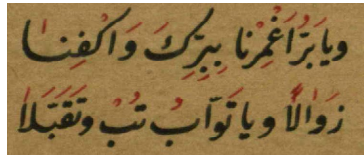 وَيَا بَرُّ اَغْمِرْنَا بِبِرِّكَ وَاكْفِنَا
زَوَالًا وَيَا تَوَّابُ تُبْ وَتَقَبَّلَا